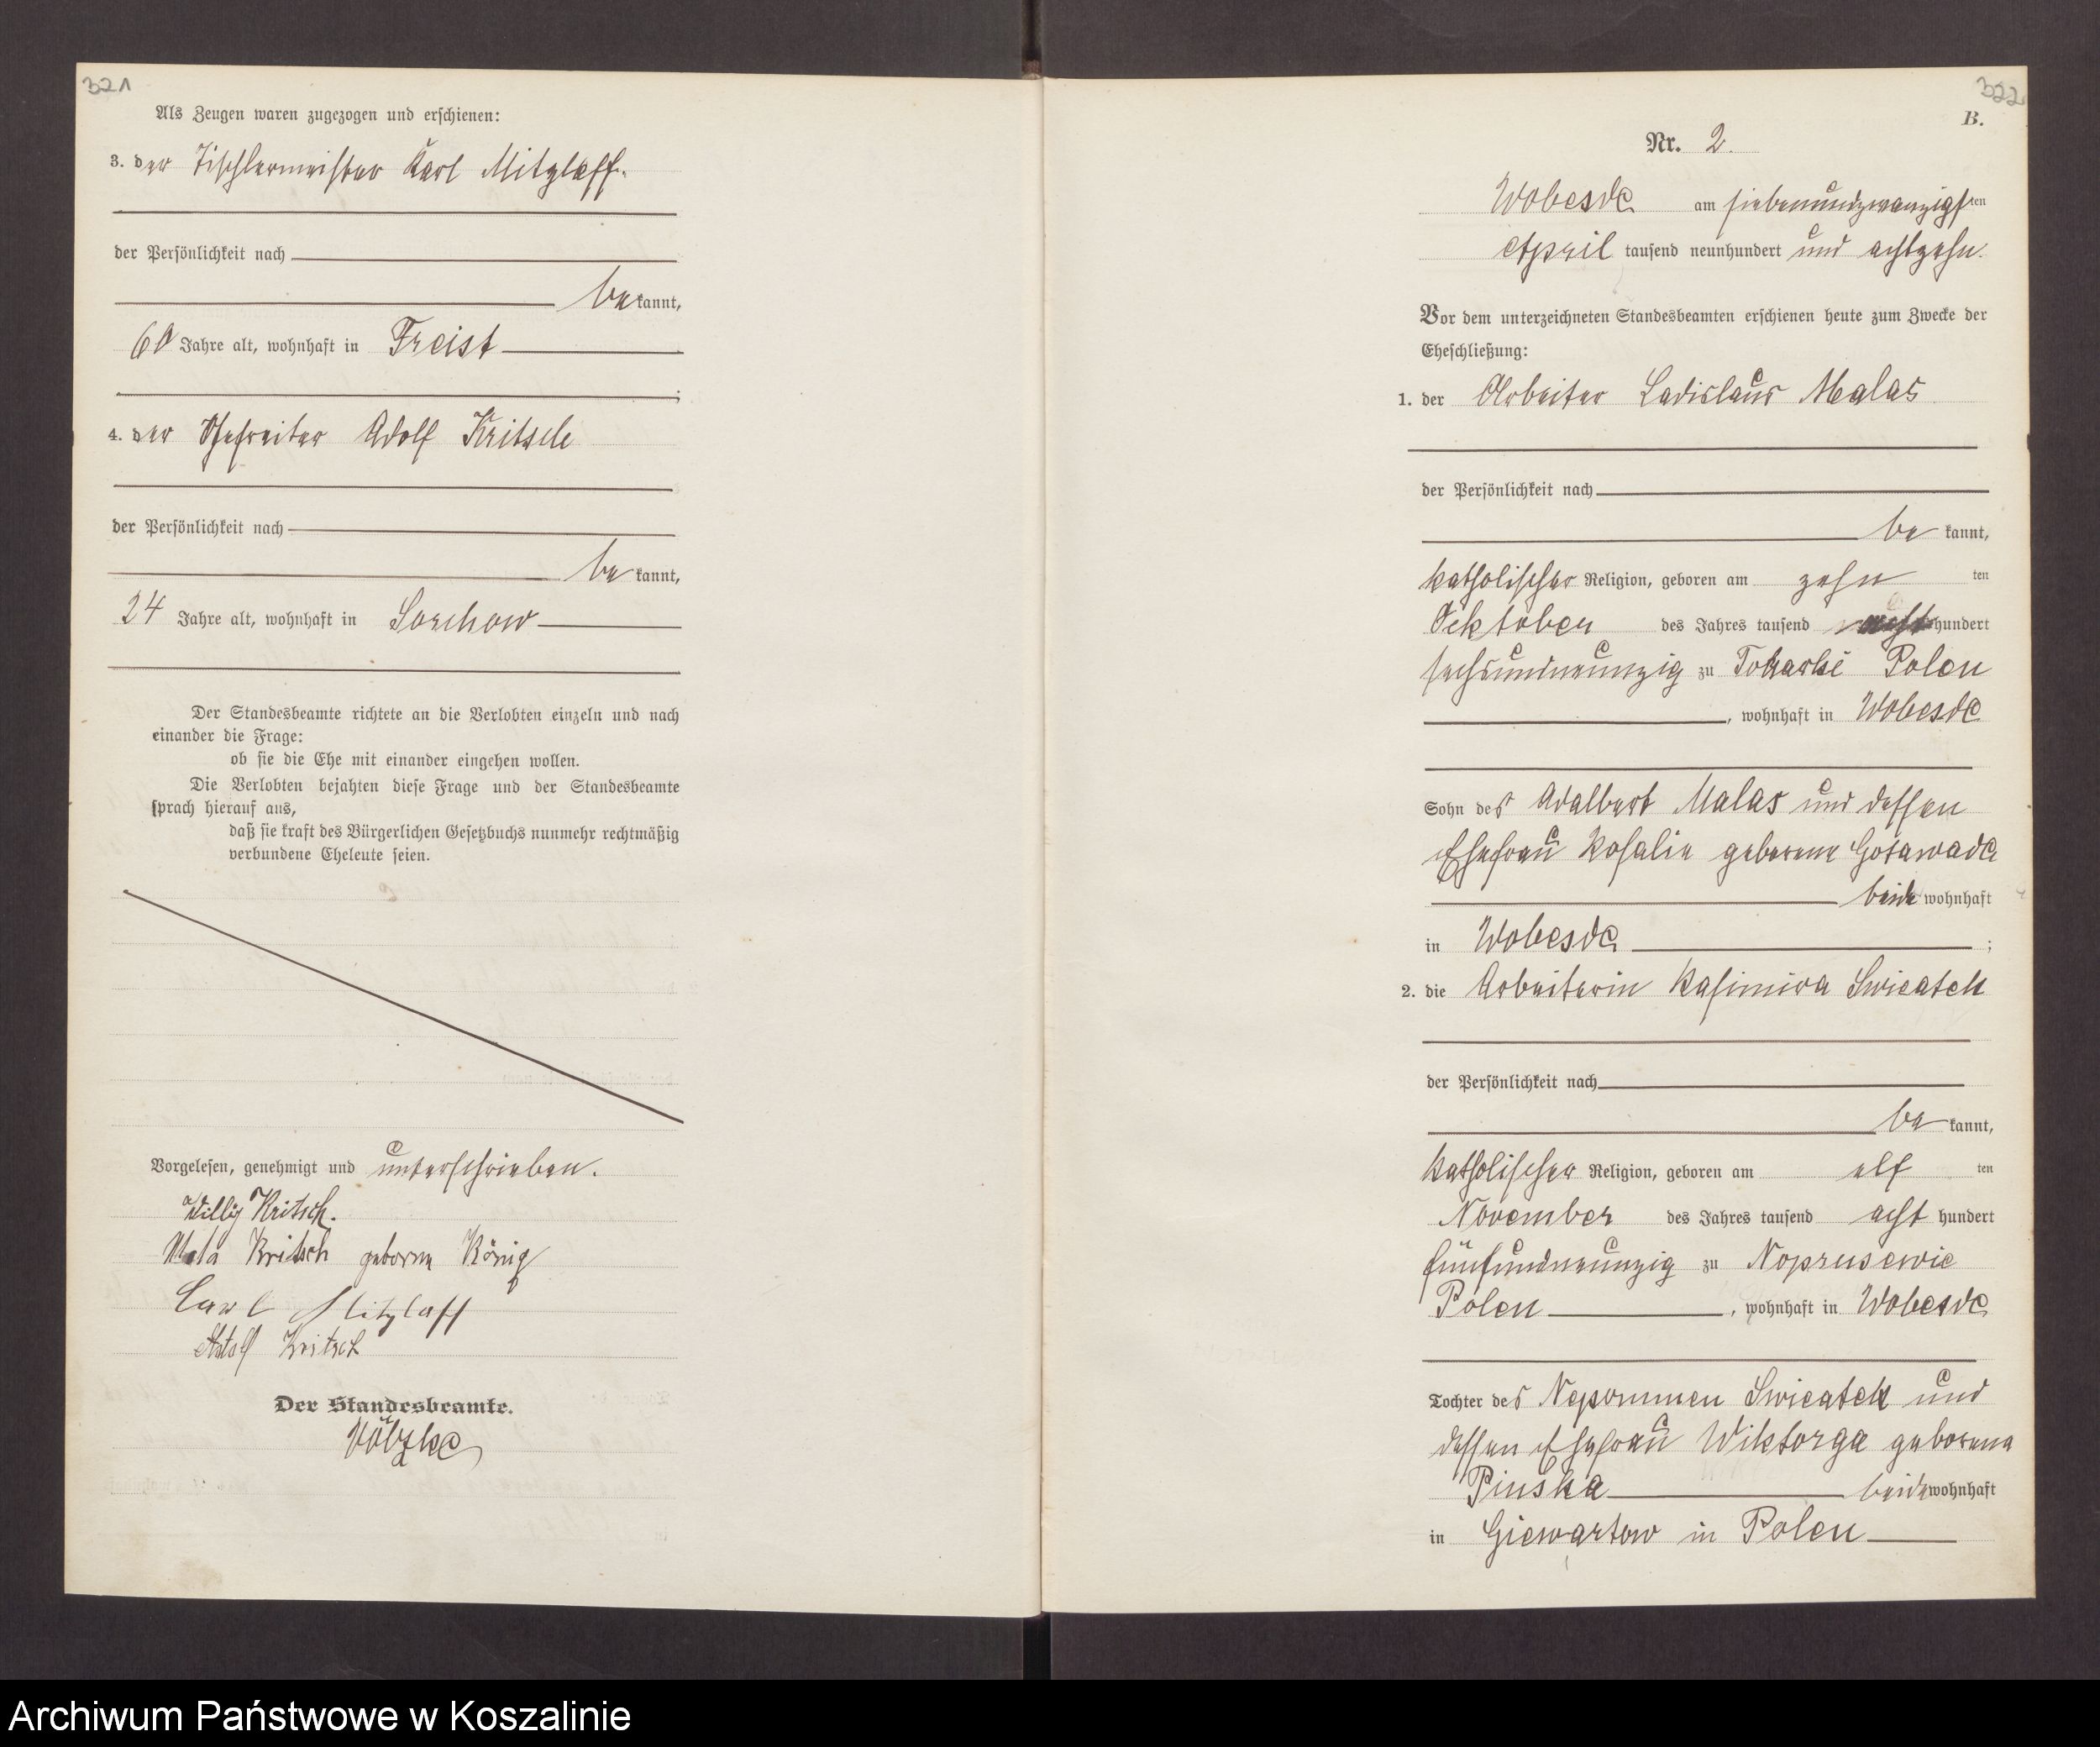 321
Als Zeugen waren zugezogen und erschienen:
3. der Tischlermeister Karl Mitzlaff.
der Persönlichkeit nach
be kannt,
60 Jahre alt, wohnhaft in Freist
;
4. der Gefreiter Adolf Kritsch
der Persönlichkeit nach
be kannt,
24 Jahre alt, wohnhaft in Sorchow
Der Standesbeamte richtete an die Verlobten einzeln und nach
einander die Frage:
ob sie die Ehe mit einander eingehen wollen.
Die Verlobten bejahten diese Frage und der Standesbeamte
sprach hierauf aus,
daß sie kraft des Bürgerlichen Gesetzbuchs nunmehr rechtmäßig
verbundene Eheleute seien.
Vorgelesen, genehmigt und unterschrieben.
Willy Kritsch.
Kritsch geborne König
Carl Mitzlaff
Adolf Kritsch
Der Standesbeamte.
322
B.
Nr. 2.
Wobesde am siebenundzwanzigsten
April tausend neunhundert und achtzehn.
Vor dem unterzeichneten Standesbeamten erschienen heute zum Zwecke der
Eheschließung:
1. der Arbeiter Ladislaus Malas
der Persönlichkeit nach
be kannt,
katholischer Religion, geboren am zehn ten
Oktober des Jahres tausend acht hundert
sechsundneunzig zu Tokarki Polen
, wohnhaft in Wobesde
Sohn des Adalbert Malas und dessen
Ehefrau Rosalie geborene
beide wohnhaft
in Wobesde ;
2. die Arbeiterin Kasimira Swieatek
der Persönlichkeit nach
be kannt,
katholischer Religion, geboren am elf ten
November des Jahres tausend acht hundert
fünfundneunzig zu Noprusewie
Polen , wohnhaft in Wobesde
Tochter des Nepommen Swieatek und
dessen Ehefrau Wiktorga geborene
Pinska beide wohnhaft
in Giewartow in Polen
Archiwum Państwowe w Koszalinie